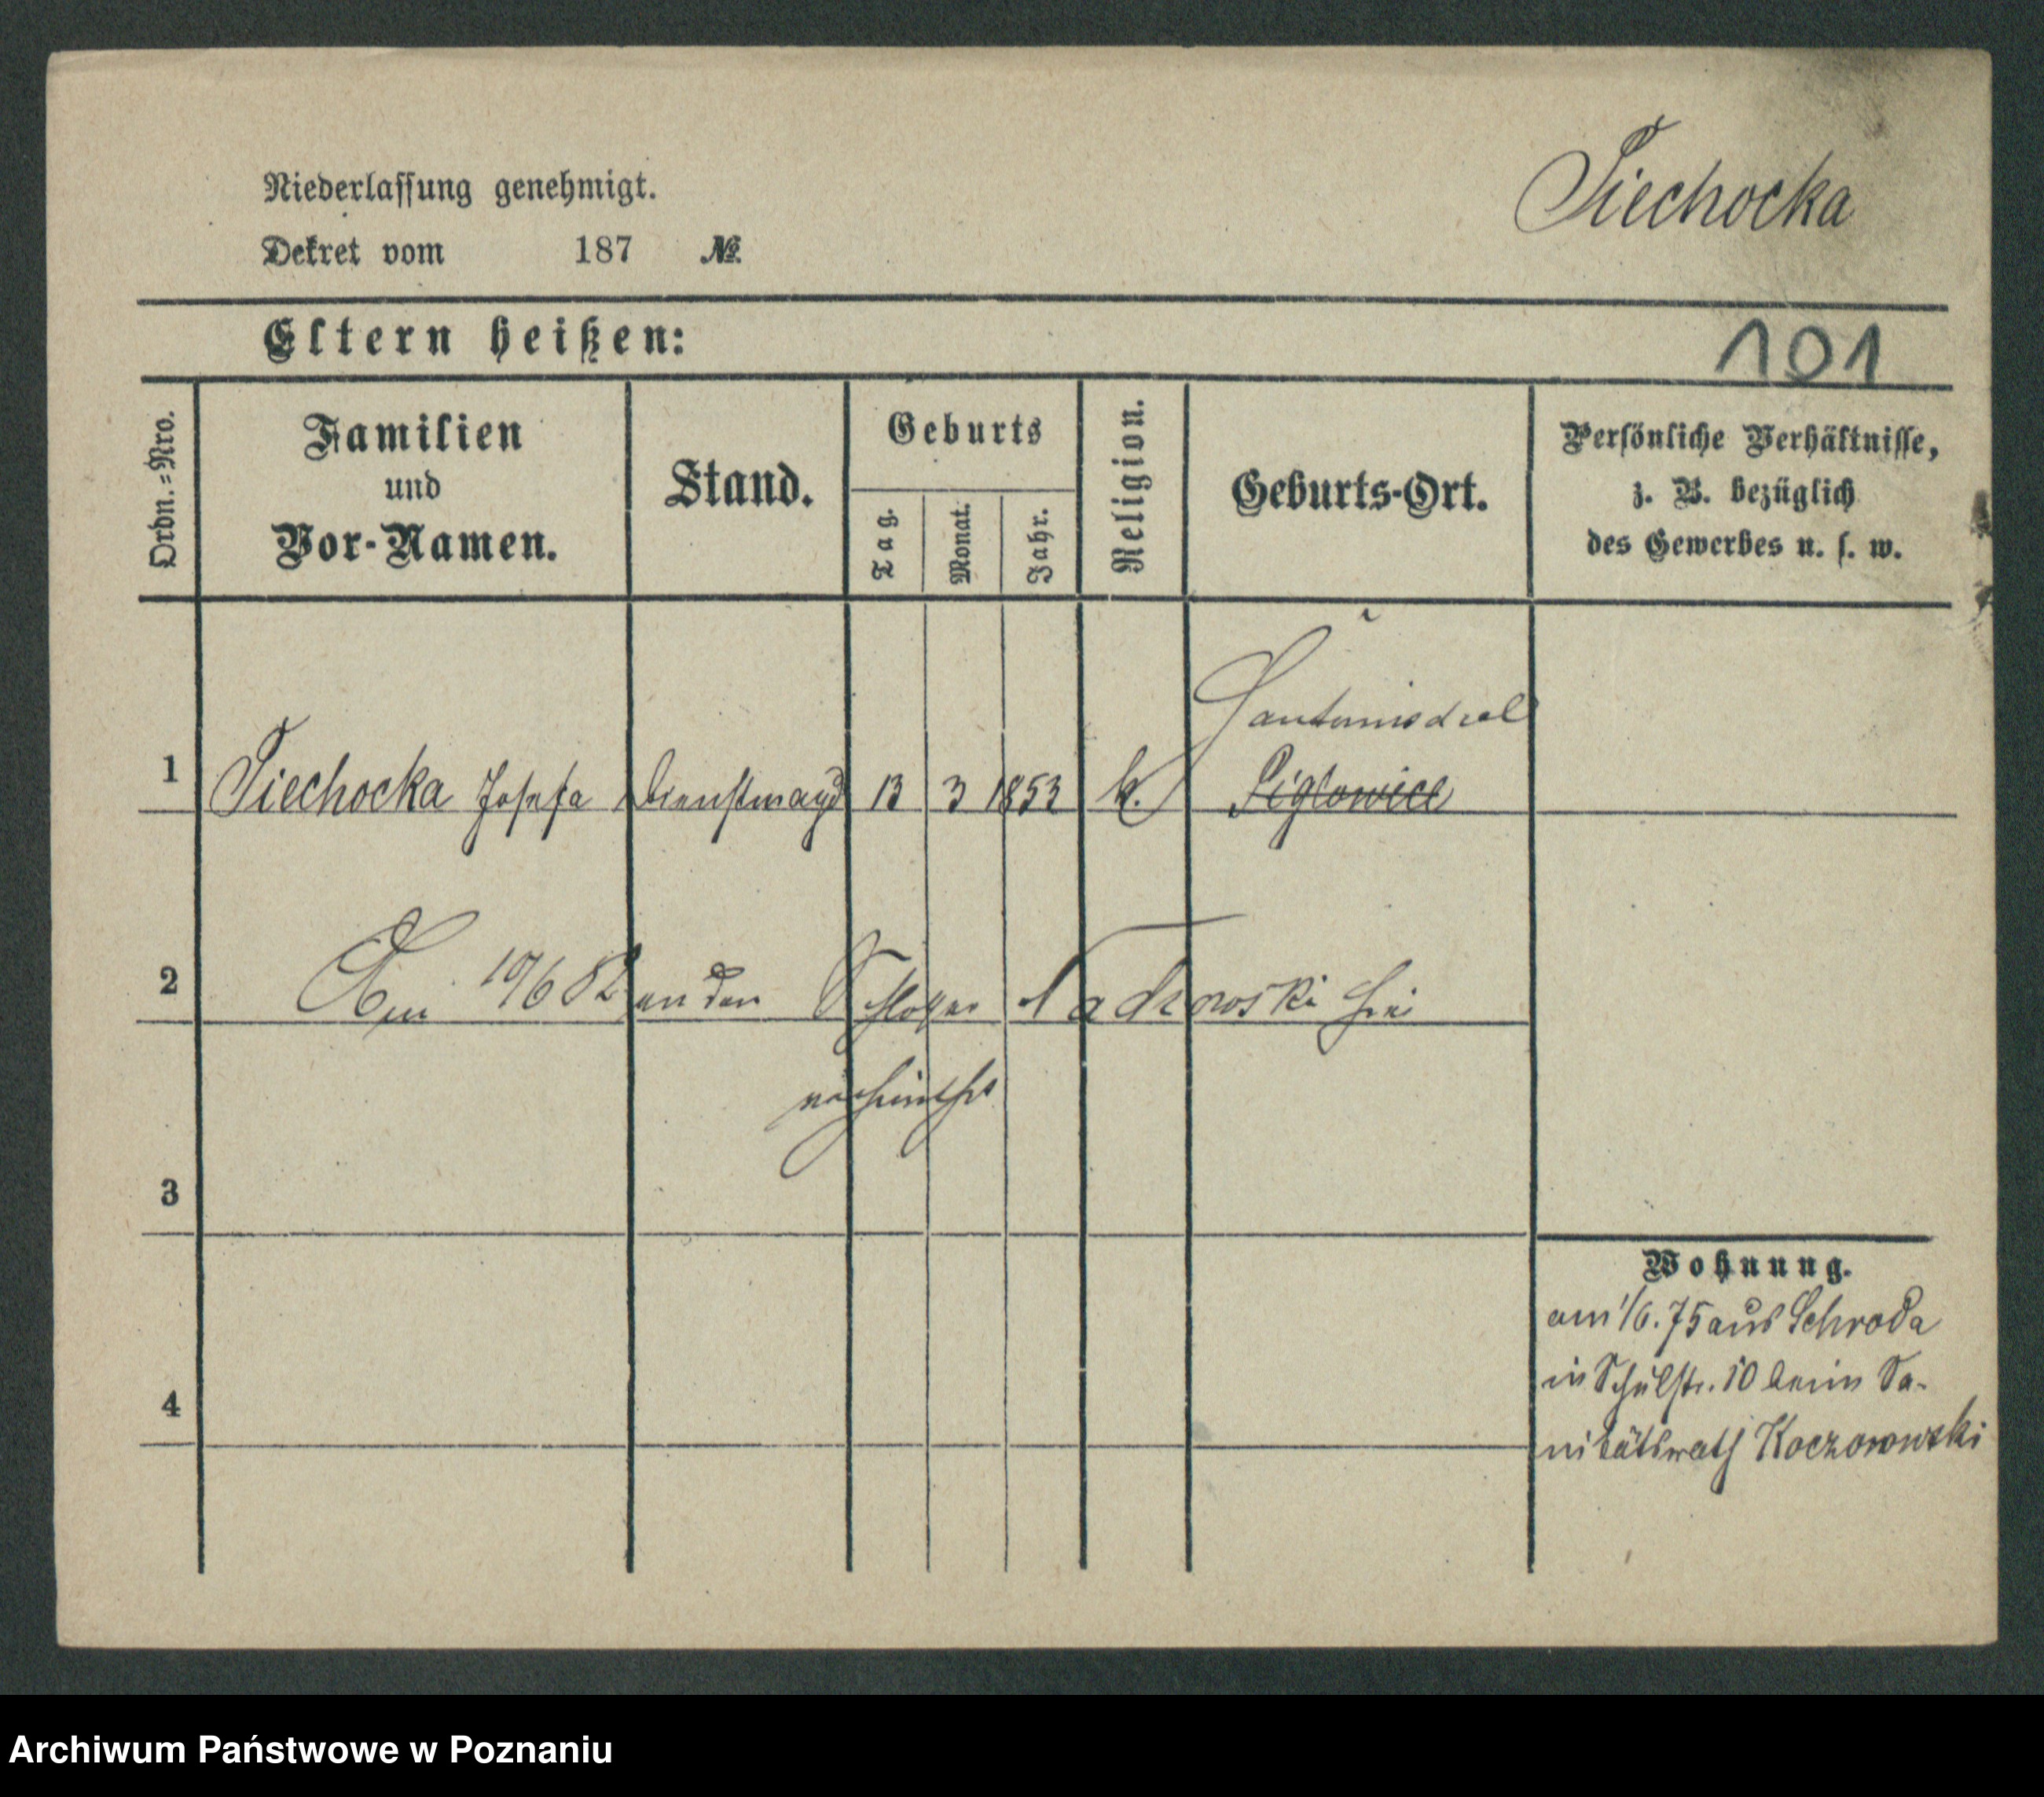 Niederlassung genehmigt.
Dekret vom 187 №
Piechocka
Eltern heißen:
101
Ordn.=Nro.
Familien
und
Vor-Namen.
Stand.
Geburts
Tag.
Monat.
Jahr.
Religion.
Geburts-Ort.
Persönliche Verhältnisse,
z. B. bezüglich
des Gewerbes u. s. w.
Santomischel
1 Piechocka Josefa Dienstmagd 13 3 1853 k. Piglowice
2 Am 10/6 82 an den Schlosser hier
verheirathet
3
4
Wohnung.
am 1/6. 75 aus Schroda
in Schulstr. 10 beim Sa-
nitätsrath Koczorowski
Archiwum Państwowe w Poznaniu